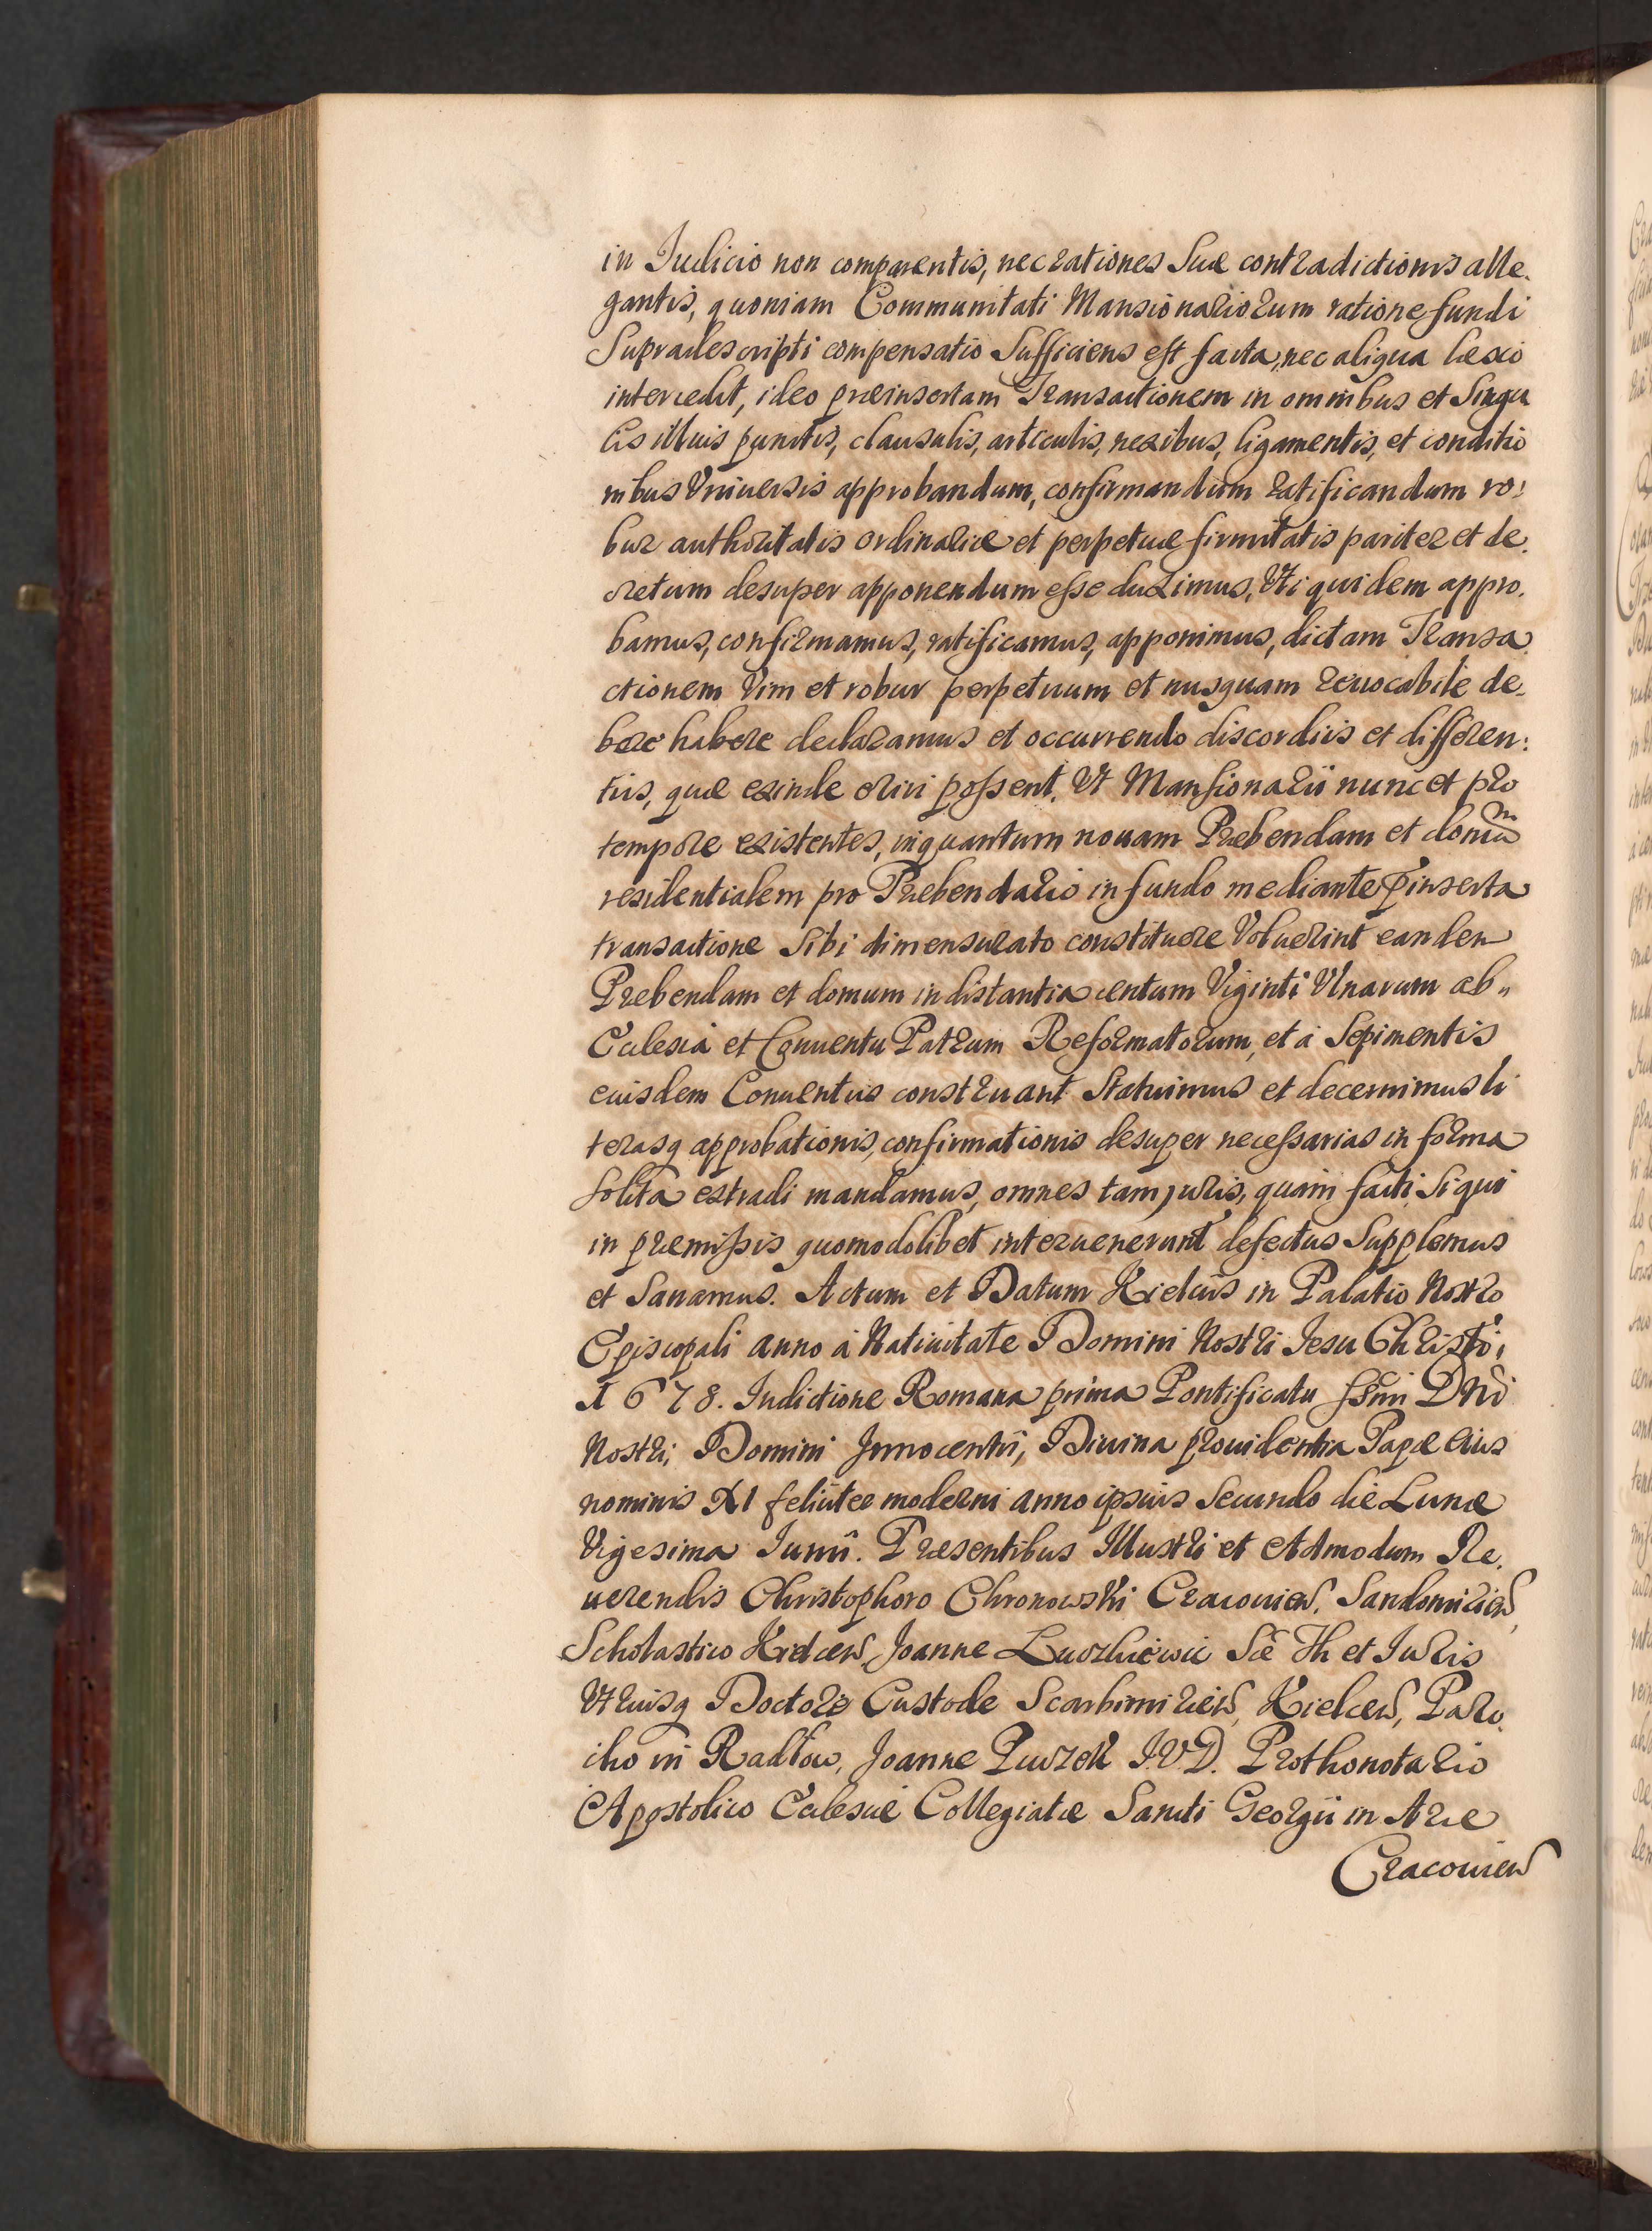 in Iudicio non comparentis, nec rationes Suæ contradictionis alle.
gantis, quoniam Communitati Mansionariorum ratione fundi
Supradescripti compensatio Sufficiens est facta, nec aliqua læsio
intercedit, ideo præinsertam Transactionem in omnibus et Singu
lis illius punctis, clausulis, articulis, nexibus, ligamentis, et conditio
nibus Vniuersis approbandum, confirmandum ratificandum ro:
bur authoritatis ordinariæ et perpetuæ firmitatis pariter et de.
cretum desuper apponendum esse duximus, Vti quidem appro.
bamus, confirmamus, ratificamus, apponimus, dictam Transa
ctionem Vim et robur perpetuum et nusquam reuocabile de-
bere habere declaramus et occurrendo discordiis et differen:
tiis, quæ exinde oriri possent, Vt Mansionarii nunc et pro
tempore existentes, inquantum nouam Præbendam et domũ
residentialem pro Præbendario in fundo mediante p̃inserta
transactione Sibi dimensurato constituere Voluerint eandem
Præbendam et domum in distantia centum Viginti Vlnarum ab,,
Ecclesia et Conuentu Patrum Reformatorum, et à Sepimentis
euisdem Conuentus construant Statuimus et decernimus li
terasq approbationis, confirmationis desuper necessarias in forma
Solita extradi mandamus, omnes tam juris, quam facti Si qui
in præmissis quomodolibet interuenerunt defectus Supplemus
et Sanamus. Actum et Datum Kielciis in Palatio Nostro
Episcopali anno à Natiuitate Domini Nostri Jesu Christi,
1678. Indictione Romana prima Pontificatu Ssmi Dñi
Nostri, Domini Innocentii, Diuina prouidentia Papæ eius
nominis XI feliciter moderni anno ipsius Secundo die Lunæ
Vigesima Iunii. Præsentibus Illustri et Admodum Re.
uerendis Christophoro Chronowski Cracouien, Sandomirien,
Scholastico Kielcen, Joanne Sæ Th et Iuris
Vtriusq Doctore Custode Scarbimirien, Kielcen, Paro.
cho in Radłow, Joanne I.V.D. Prothonotario
Apostolico Ecclesiæ Collegiatæ Sancti Georgii in Arce
Cracouien